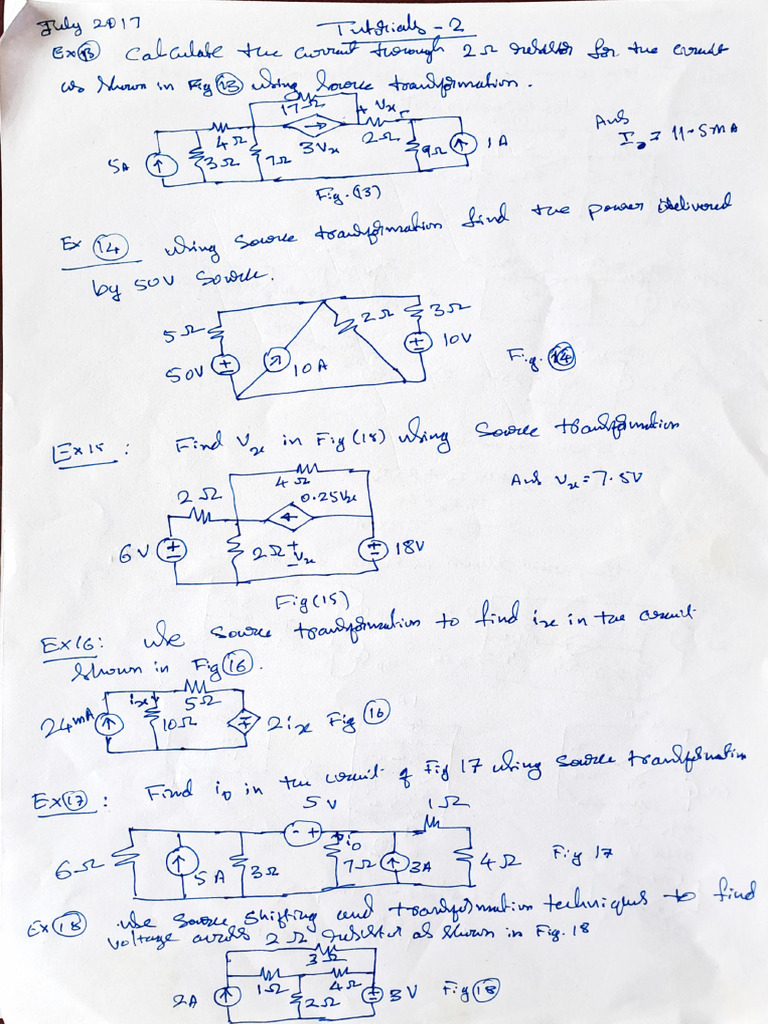 July 2017
Tutorials - 2
Ex 13 Calculate the current through 2Ω resistor for the circuit
as shown in Fig 13 using source transformation.
17Ω + Vx -
4Ω 3Vx 2Ω
5A 3Ω 7Ω 9Ω 1A
Ans
I2 = 11.5mA
Fig. (13)
Ex 14 using source transformation find the power delivered
by 50V source.
5Ω 2Ω 3Ω
50V 10A 10V
Fig. 14
Ex 15 : Find Vx in Fig (15) using source transformation
Ans Vx = 7.5V
4Ω
2Ω 0.25Vx
6V 2Ω + Vx - 18V
Fig (15)
Ex 16: Use source transformation to find ix in the circuit
shown in Fig 16.
ix 5Ω
24mA 10Ω 2ix Fig 16
Ex 17 : Find i0 in the circuit of Fig 17 using source transformation
5V 1Ω
i0
6Ω 5A 3Ω 7Ω 3A 4Ω Fig 17
Ex 18 Use source shifting and transformation techniques to find
voltage across 2Ω resistor as shown in Fig. 18
3Ω
1Ω 4Ω
2A 2Ω 3V Fig 18